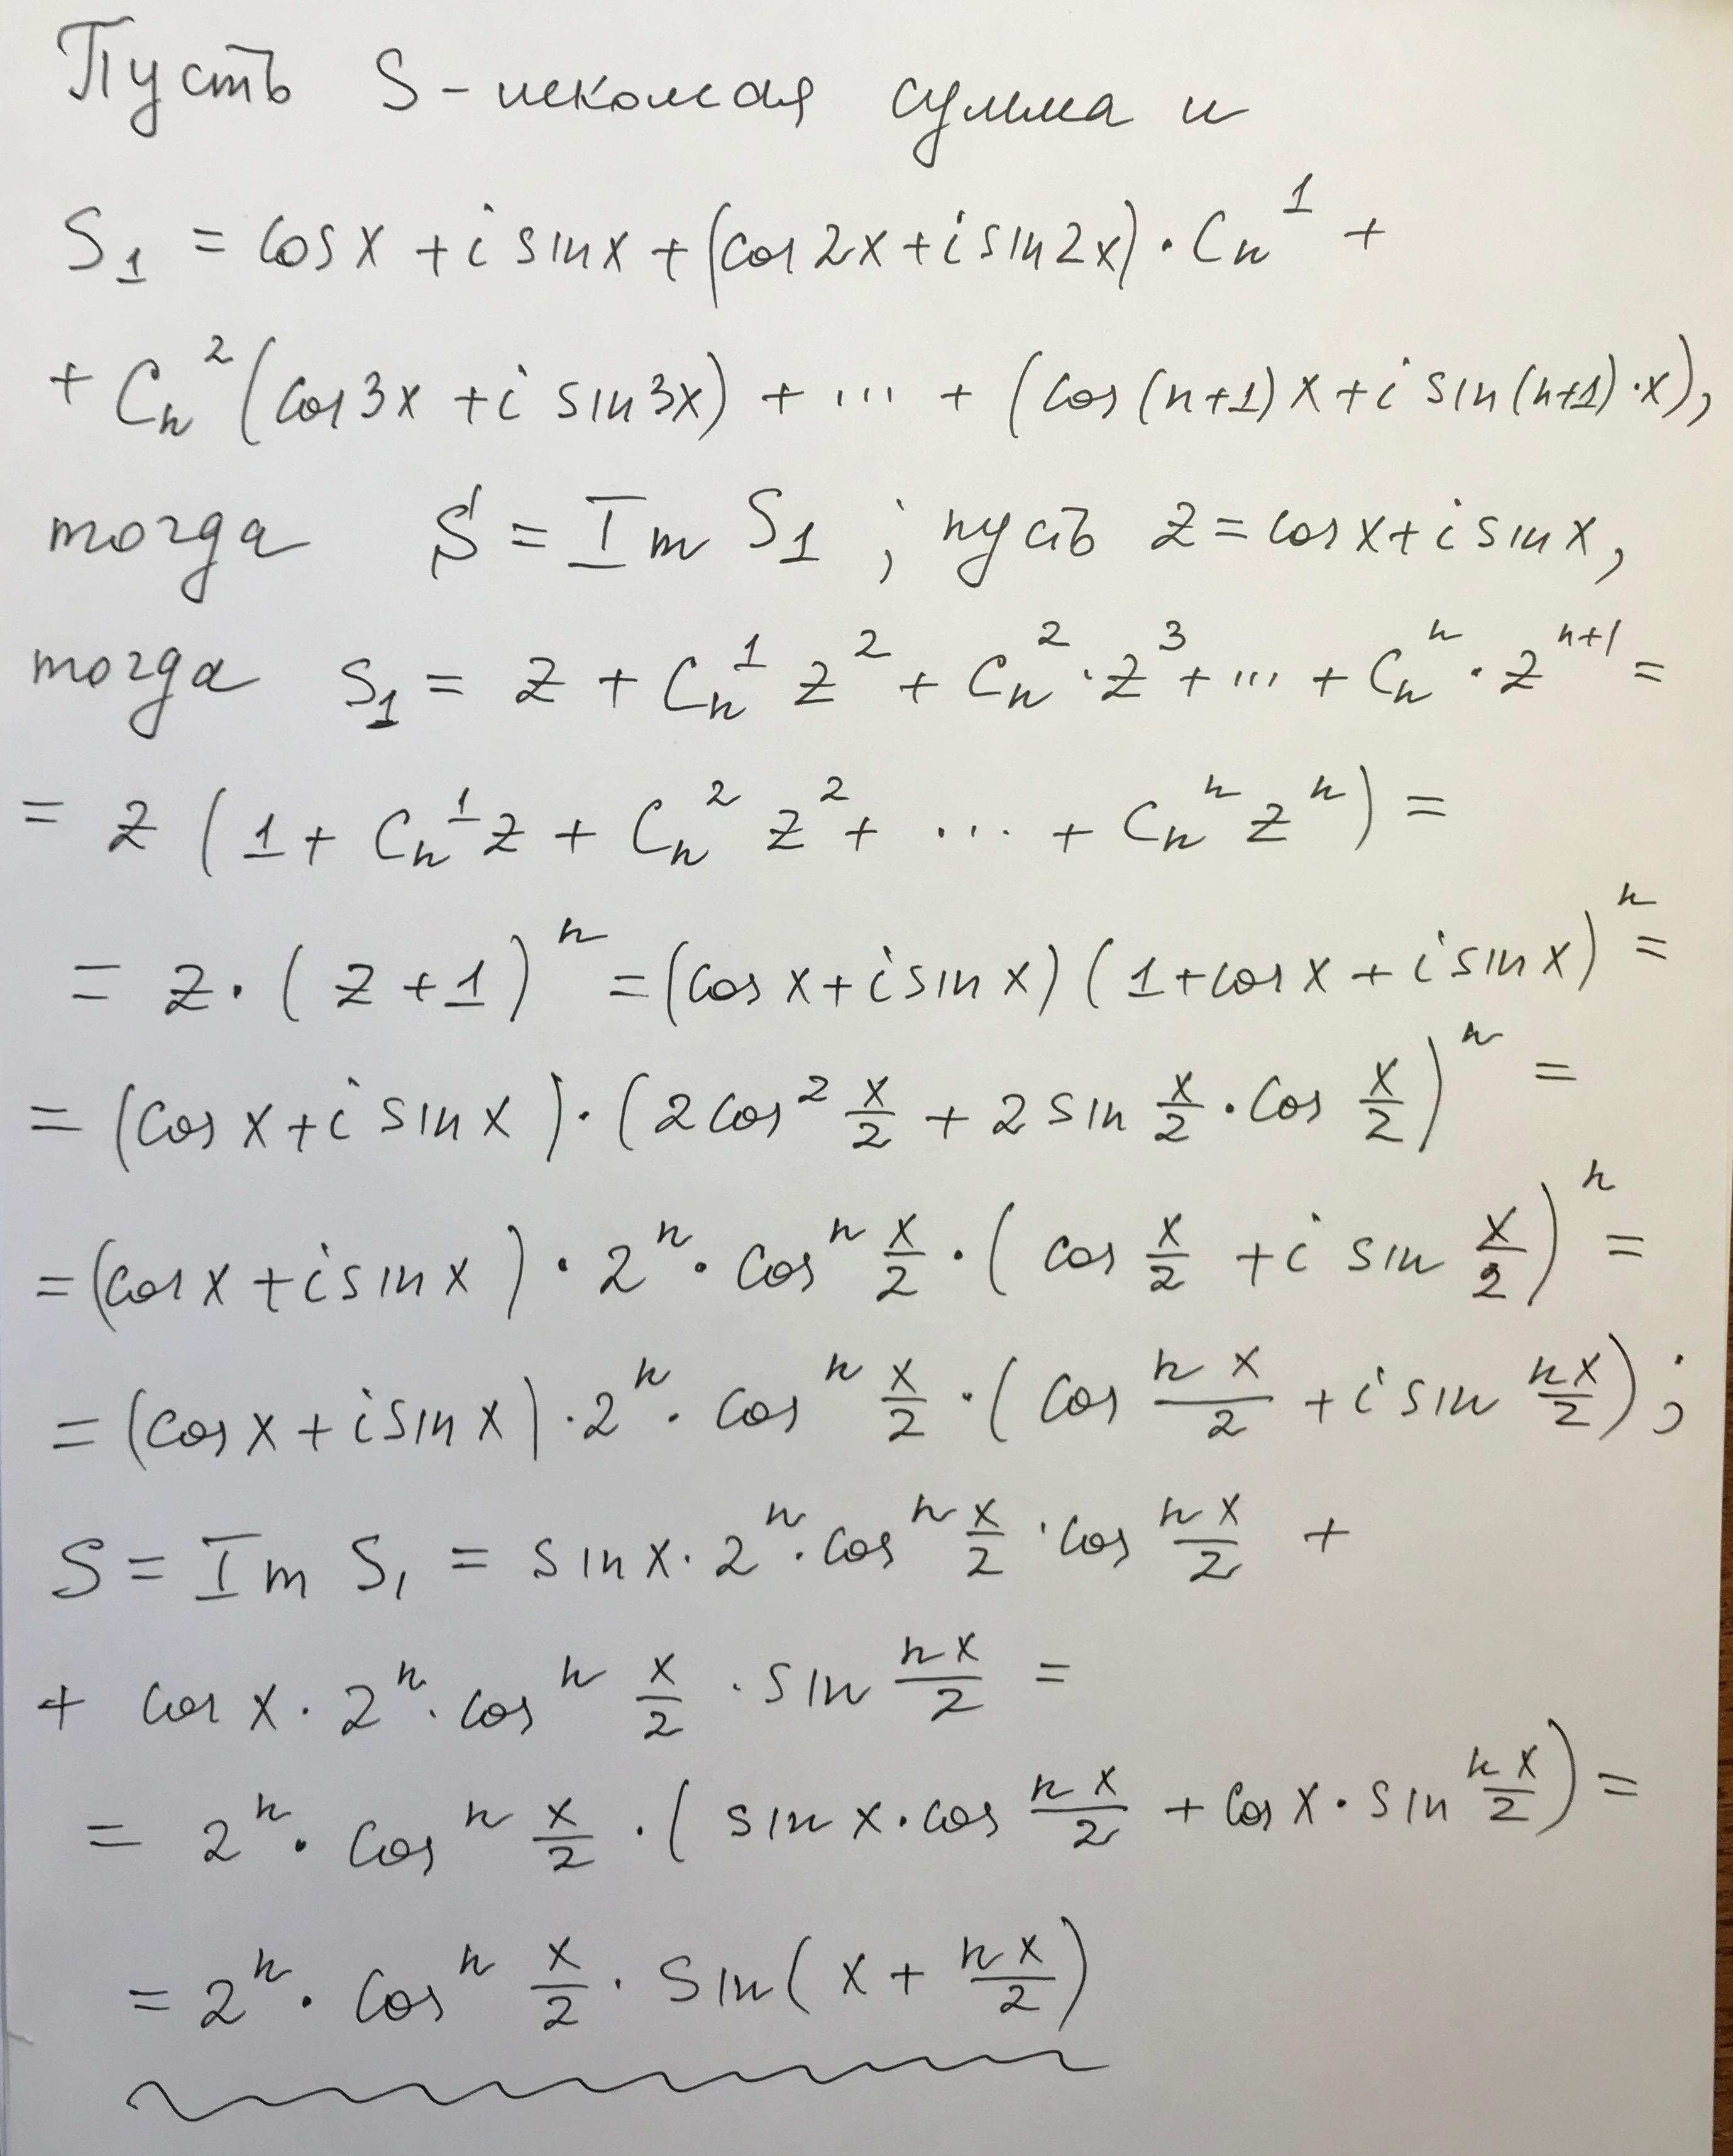 Пусть S - искомая сумма и
S₁ = cos x + i sin x + (cos 2x + i sin 2x) · Cₙ¹ +
+ Cₙ² (cos 3x + i sin 3x) + ... + (cos (n+1) x + i sin (n+1) · x),
тогда S = Im S₁ ; пусть z = cos x + i sin x,
тогда S₁ = z + Cₙ¹ z² + Cₙ² · z³ + ... + Cₙⁿ · zⁿ⁺¹ =
= z (1 + Cₙ¹ z + Cₙ² z² + ... + Cₙⁿ zⁿ) =
= z · (z + 1)ⁿ = (cos x + i sin x) (1 + cos x + i sin x)ⁿ =
= (cos x + i sin x) · (2 cos² x/2 + 2 sin x/2 · cos x/2)ⁿ =
= (cos x + i sin x) · 2ⁿ · cosⁿ x/2 · (cos x/2 + i sin x/2)ⁿ =
= (cos x + i sin x) · 2ⁿ · cosⁿ x/2 · (cos nx/2 + i sin nx/2) ;
S = Im S₁ = sin x · 2ⁿ · cosⁿ x/2 · cos nx/2 +
+ cos x · 2ⁿ · cosⁿ x/2 · sin nx/2 =
= 2ⁿ · cosⁿ x/2 · (sin x · cos nx/2 + cos x · sin nx/2) =
= 2ⁿ · cosⁿ x/2 · sin (x + nx/2)